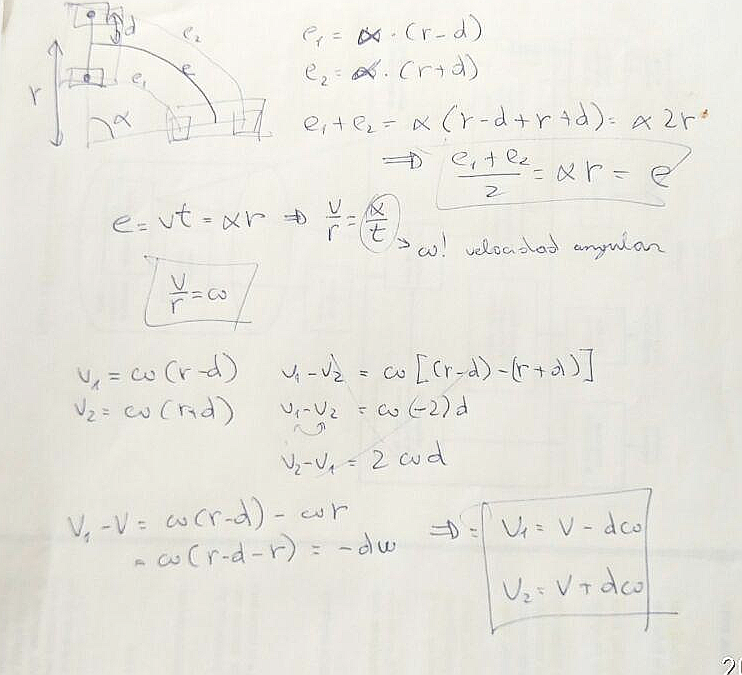 d
e₂
e
e₁
r
α
e₁ = α · (r-d)
e₂ = α · (r+d)
e₁ + e₂ = α (r-d+r+d) = α 2r
⇒ (e₁ + e₂)/2 = αr = e
e = vt = αr ⇒ v/r = α/t
→ ω! velocidad angular
v/r = ω
v₁ = ω (r-d)
v₂ = ω (r+d)
v₁ - v₂ = ω [(r-d) - (r+d)]
v₁ - v₂ = ω (-2)d
v₂ - v₁ = 2 ω d
v₁ - v = ω(r-d) - ωr
= ω(r-d-r) = -dω
⇒ v₁ = v - dω
v₂ = v + dω